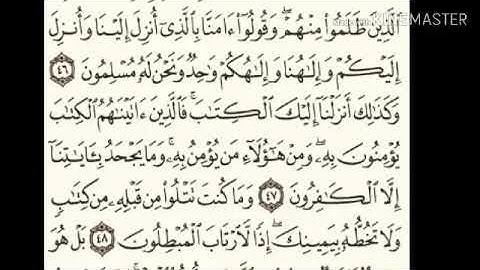 KINEMASTER
ٱلَّذِينَ ظَلَمُوا۟ مِنْهُمْ ۖ وَقُولُوٓا۟ ءَامَنَّا بِٱلَّذِىٓ أُنزِلَ إِلَيْنَا وَأُنزِلَ
إِلَيْكُمْ وَإِلَـٰهُنَا وَإِلَـٰهُكُمْ وَٰحِدٌ وَنَحْنُ لَهُۥ مُسْلِمُونَ ٤٦
وَكَذَٰلِكَ أَنزَلْنَآ إِلَيْكَ ٱلْكِتَـٰبَ ۚ فَٱلَّذِينَ ءَاتَيْنَـٰهُمُ ٱلْكِتَـٰبَ
يُؤْمِنُونَ بِهِۦ ۖ وَمِنْ هَـٰٓؤُلَآءِ مَن يُؤْمِنُ بِهِۦ ۚ وَمَا يَجْحَدُ بِـَٔايَـٰتِنَآ
إِلَّا ٱلْكَـٰفِرُونَ ٤٧ وَمَا كُنتَ تَتْلُوا۟ مِن قَبْلِهِۦ مِن كِتَـٰبٍ
وَلَا تَخُطُّهُۥ بِيَمِينِكَ ۖ إِذًا لَّٱرْتَابَ ٱلْمُبْطِلُونَ ٤٨ بَلْ هُوَ